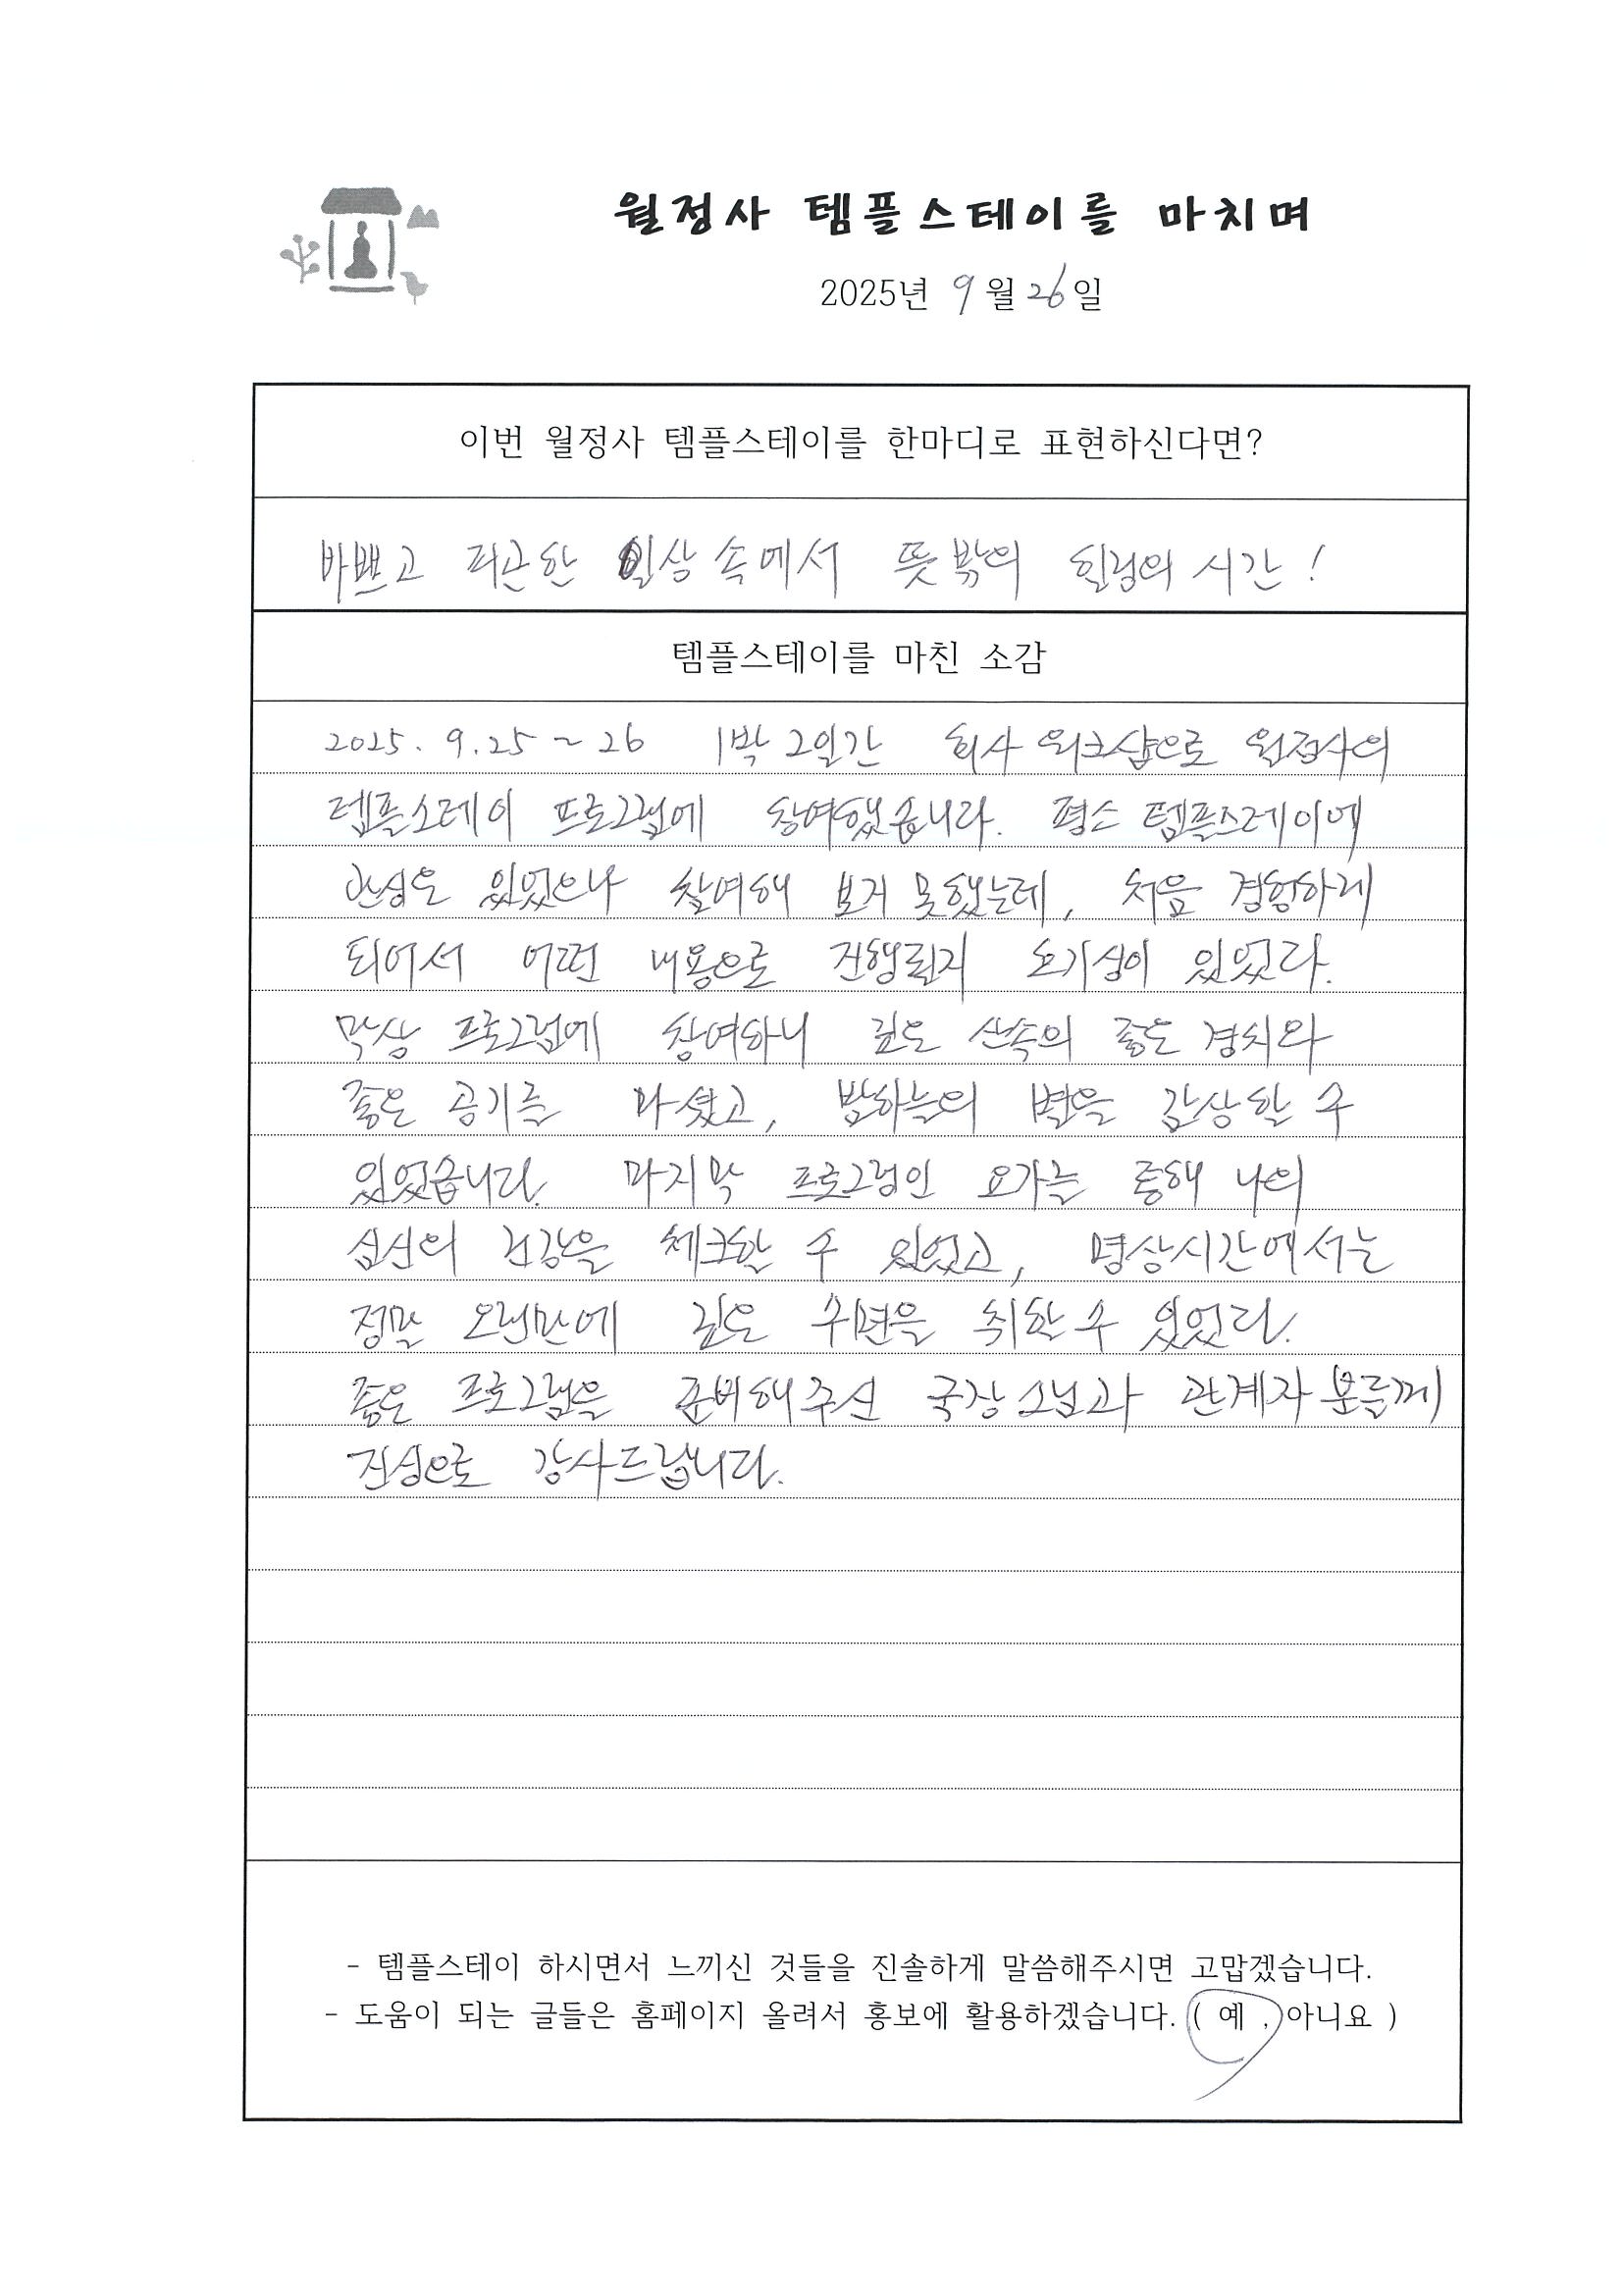 월정사 템플스테이를 마치며
2025년 9월 26일
이번 월정사 템플스테이를 한마디로 표현하신다면?
바쁘고 피곤한 일상 속에서 뜻밖의 힐링의 시간!
템플스테이를 마친 소감
2025. 9. 25 ~ 26 1박 2일간 회사 워크샵으로 월정사의
템플스테이 프로그램에 참여했습니다. 평소 템플스테이에
관심은 있었으나 참여해 보지 못했는데, 처음 경험하게
되어서 어떤 내용으로 진행될지 호기심이 있었다.
막상 프로그램에 참여하니 깊은 산속의 좋은 경치와
좋은 공기를 마셨고, 밤하늘의 별을 감상할 수
있었습니다. 마지막 프로그램인 요가를 통해 나의
심신의 건강을 체크할 수 있었고, 명상시간에서는
정말 오랜만에 깊은 수면을 취할 수 있었다.
좋은 프로그램을 준비해주신 국장스님과 관계자 분들께
진심으로 감사드립니다.
- 템플스테이 하시면서 느끼신 것들을 진솔하게 말씀해주시면 고맙겠습니다.
- 도움이 되는 글들은 홈페이지 올려서 홍보에 활용하겠습니다. ( 예 , 아니요 )